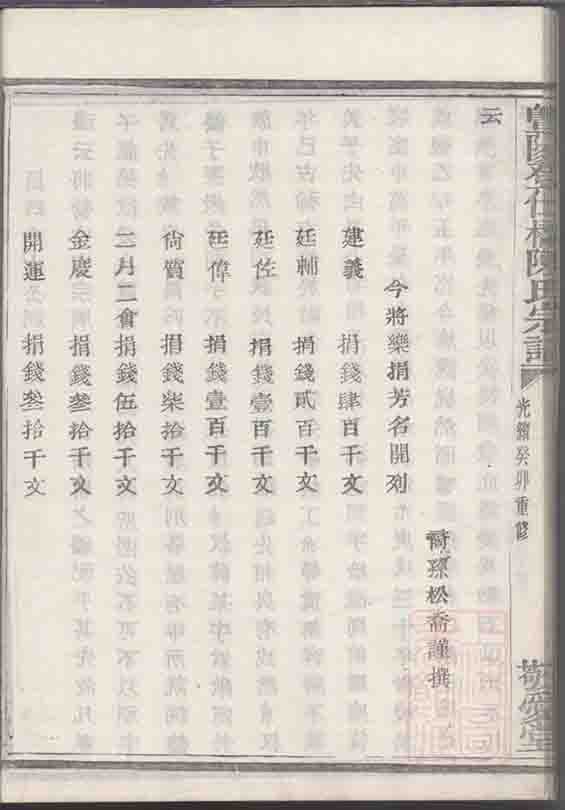 陳氏宗譜
光緒癸卯重修
敬愛堂
云
裔孫松喬謹撰
今將樂捐芳名開列
建義 捐錢肆百千文
廷輔 捐錢貳百千文
廷佐 捐錢壹百千文
廷偉 捐錢壹百千文
尙質 捐錢柒拾千文
二月二會捐錢伍拾千文
金慶 捐錢叄拾千文
開運 捐錢叄拾千文